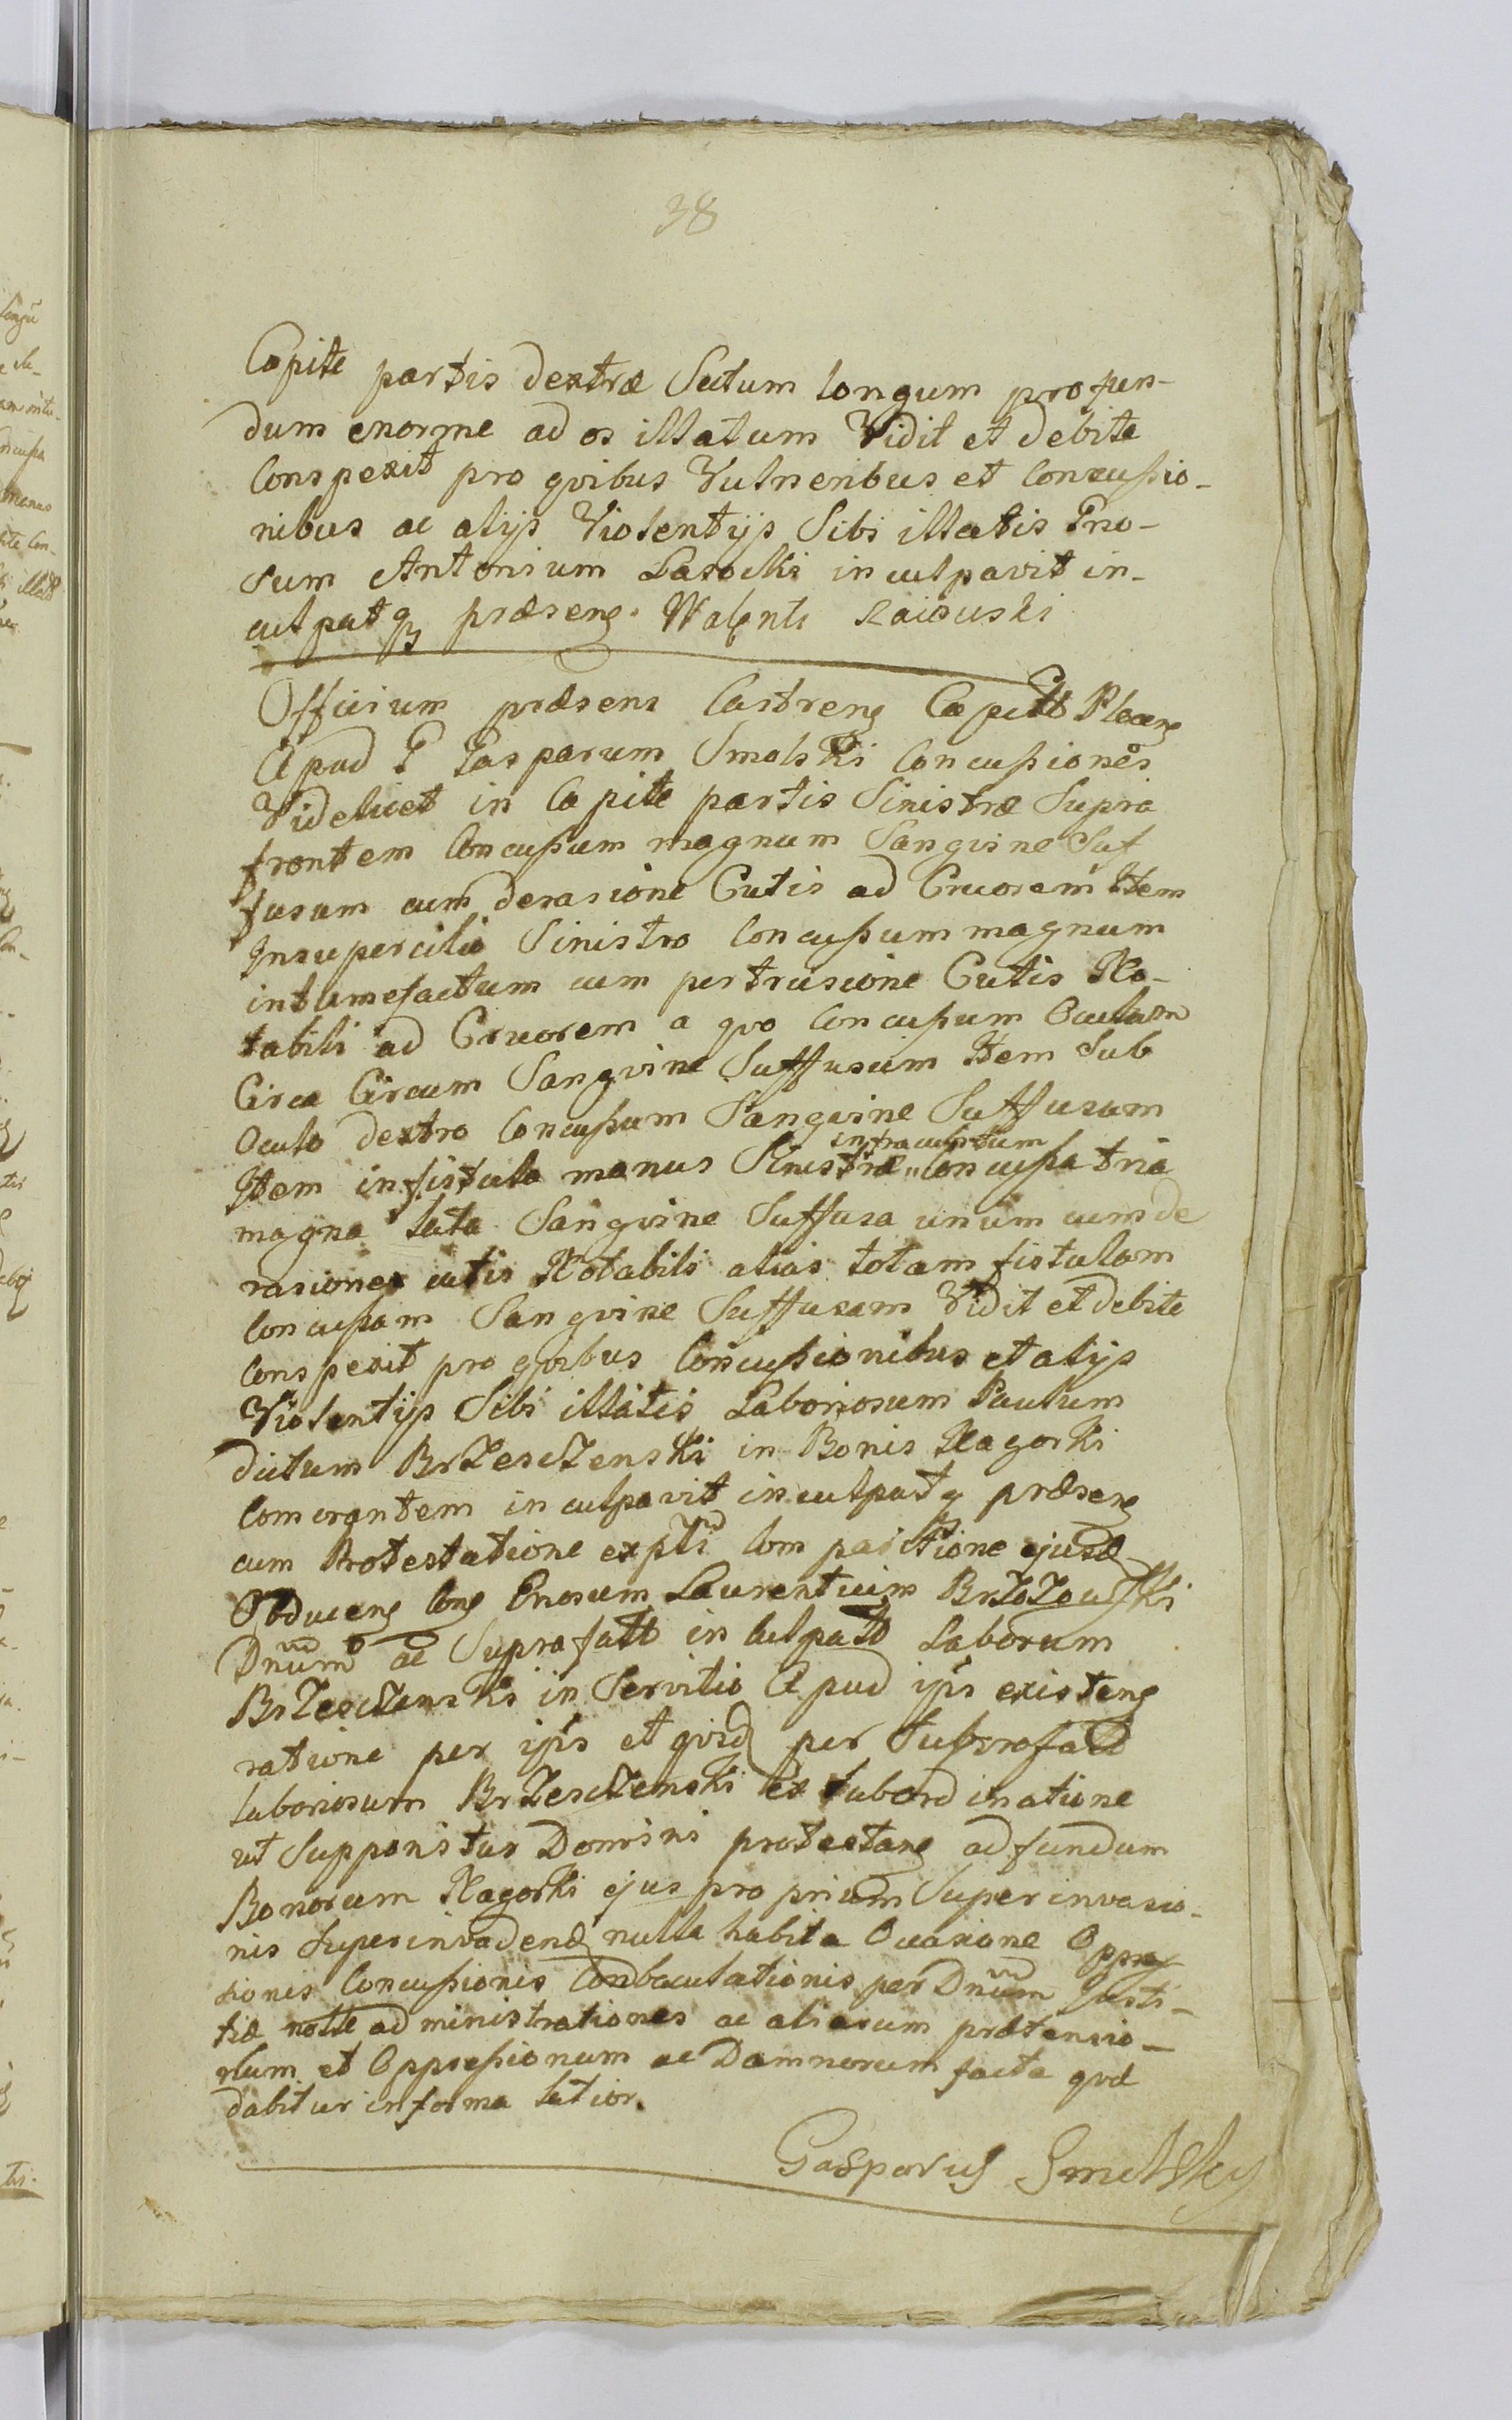 38
Capite partis dextræ Sectum longum profun-
dum enorme ad os illatum Vidit et debite
Conspexit pro qvibus Vulneribus et Concussio-
nibus ac alijs Violentijs Sibi illatis Gno-
sum Antonium Lasocki inculpavit in-
culpatq præseng. Walenti
Officium præsens Castreng Capitt
Apud G Gasparum Smolski Concussiones
Videlicet in Capite partis Sinistræ Supra
frontem Concussum magnum Sangvine Suf
fusum cum derasione Cutis ad Cruorem Item
Insupercilio Sinistro Concussum magnum
intumefactum cum pertrusione Cutis No-
tabili ad Cruorem a qvo Concussum Oculum
Circa Circum Sangvine Suffusum Item Sub
Oculo dextro Concussum Sangvine Suffusum
infra cubitum
Item in fistula manus Sinistræ " Concussa tria
magna lata Sangvine Suffusa unum cum de
rasione cutis Notabili alias totam fistulam
Concussam Sangvine Suffusam Vidit et debite
Conspexit pro qvibus Concussionibus et alijs
Violentijs Sibi illatis Laboriosum Paulum
dictum BrZescZenski in Bonis Nagorki
Comorantem inculpavit inculpatq præseng
cum Protestatione expti Comparitione ejusd
Obduceng Cong Gnosum Laurentium BrZoZowski
Dnum ac Suprafatt inCulpatt Laborum
BrZescZenski in Servitio Apud ips existeng
ratione per ips et qvid per Suprafatt
laboriosum BrZescZenski ex Subordinatione
ut Supponitur Domini protectang ad fundum
Bonorum Nagorki ejus proprium Superinvasio-
nis Superinvadend nulla habita Occasione Oppres
sionis Concussionis Conbaculationis per Dnum Justi-
tiæ nolle administrationes ac aliarum prætensio-
num et Oppressionum ac Damnorum facta qvæ
dabitur in forma latior.
Gasparus Smolsky